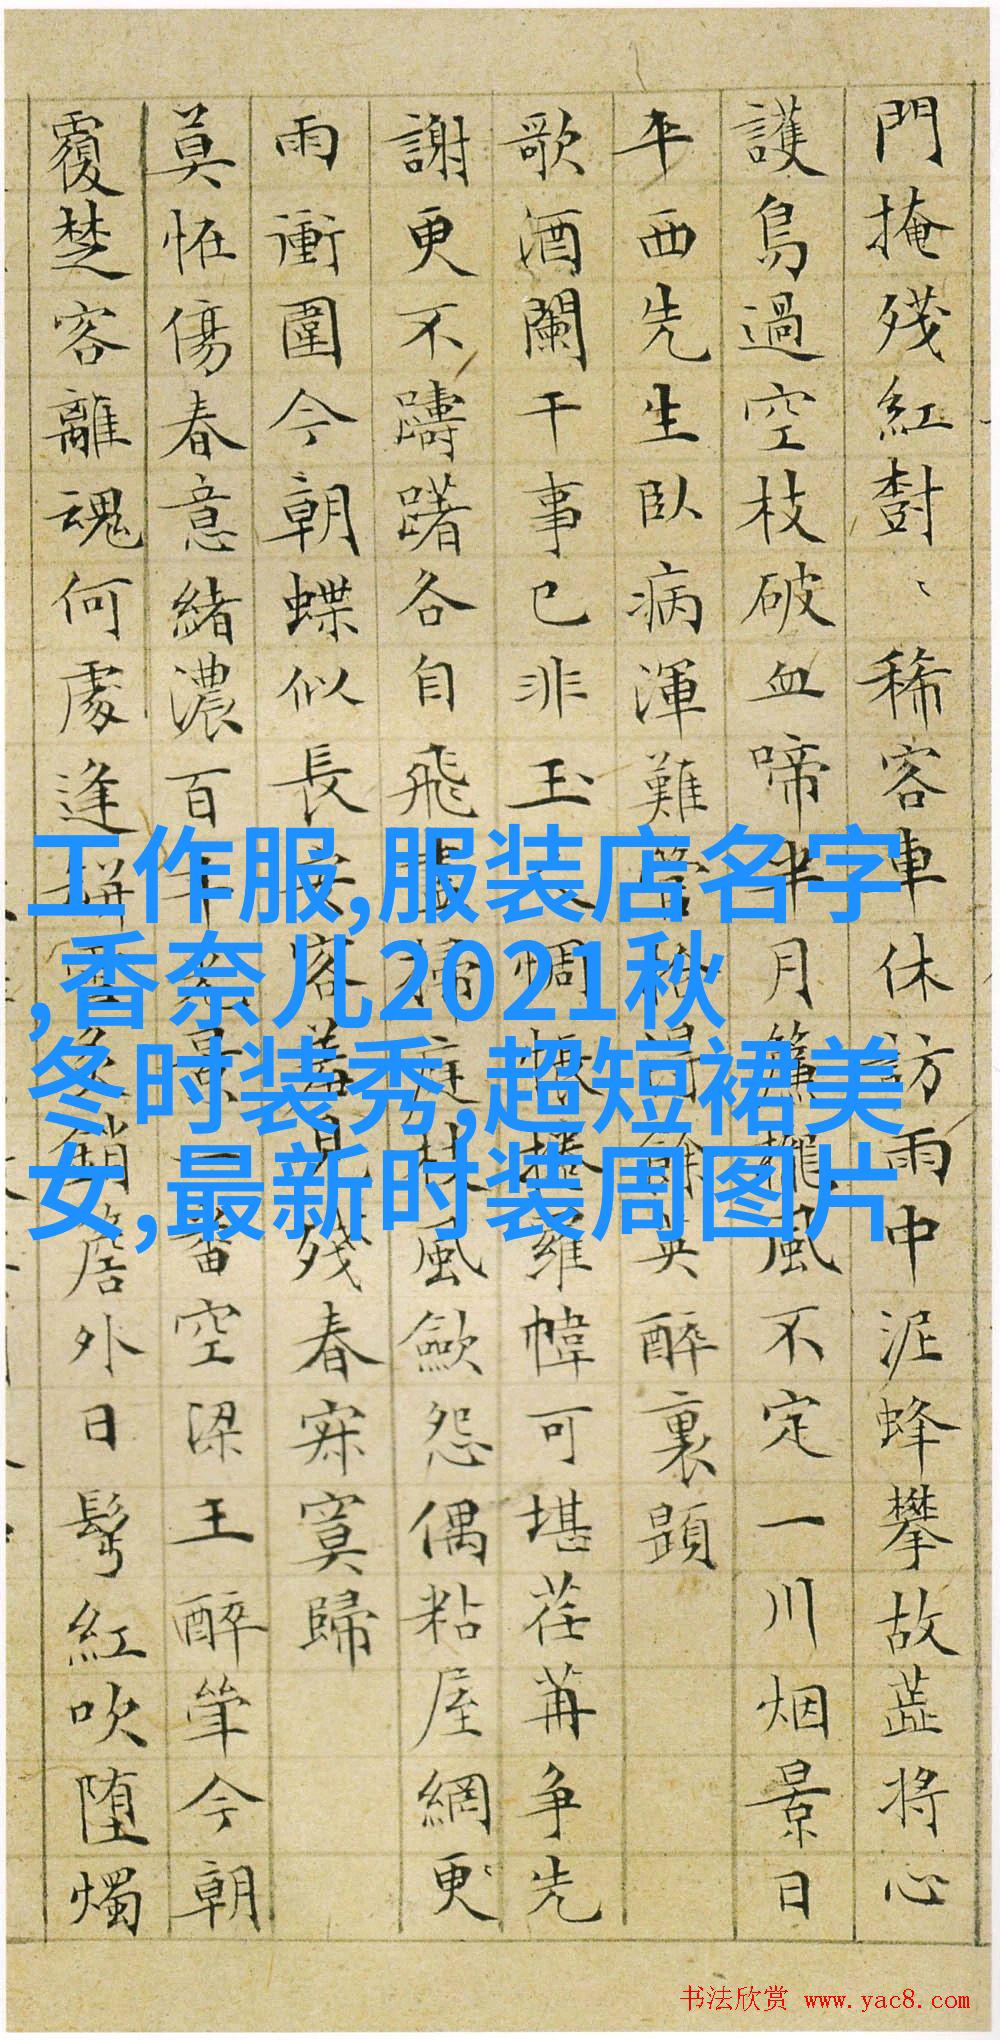 門掩殘紅樹〻稀客車休訪雨中泥蜂攀故蕋將心
護鳥過空枝破血啼半月簾櫳風不定一川烟景日
平西先生臥病渾難管拾得餘英醉裏題
歌酒闌干事已非玉惆悵捲羅幃可堪荏苒争先
謝更不躊躇各自飛掃庭風歛怨偶粘屋網更
雨衝圍今朝蝶似長安客羞見殘春寂寞歸
莫恠傷春意緒濃百年景一番空梁王醉筆今朝
覆楚客離魂何處逢銷簷外日髩紅吹墮燭
工作服,服装店名字
,香奈儿2021秋
冬时装秀,超短裙美
女,最新时装周图片
书法欣赏 www.yac8.com